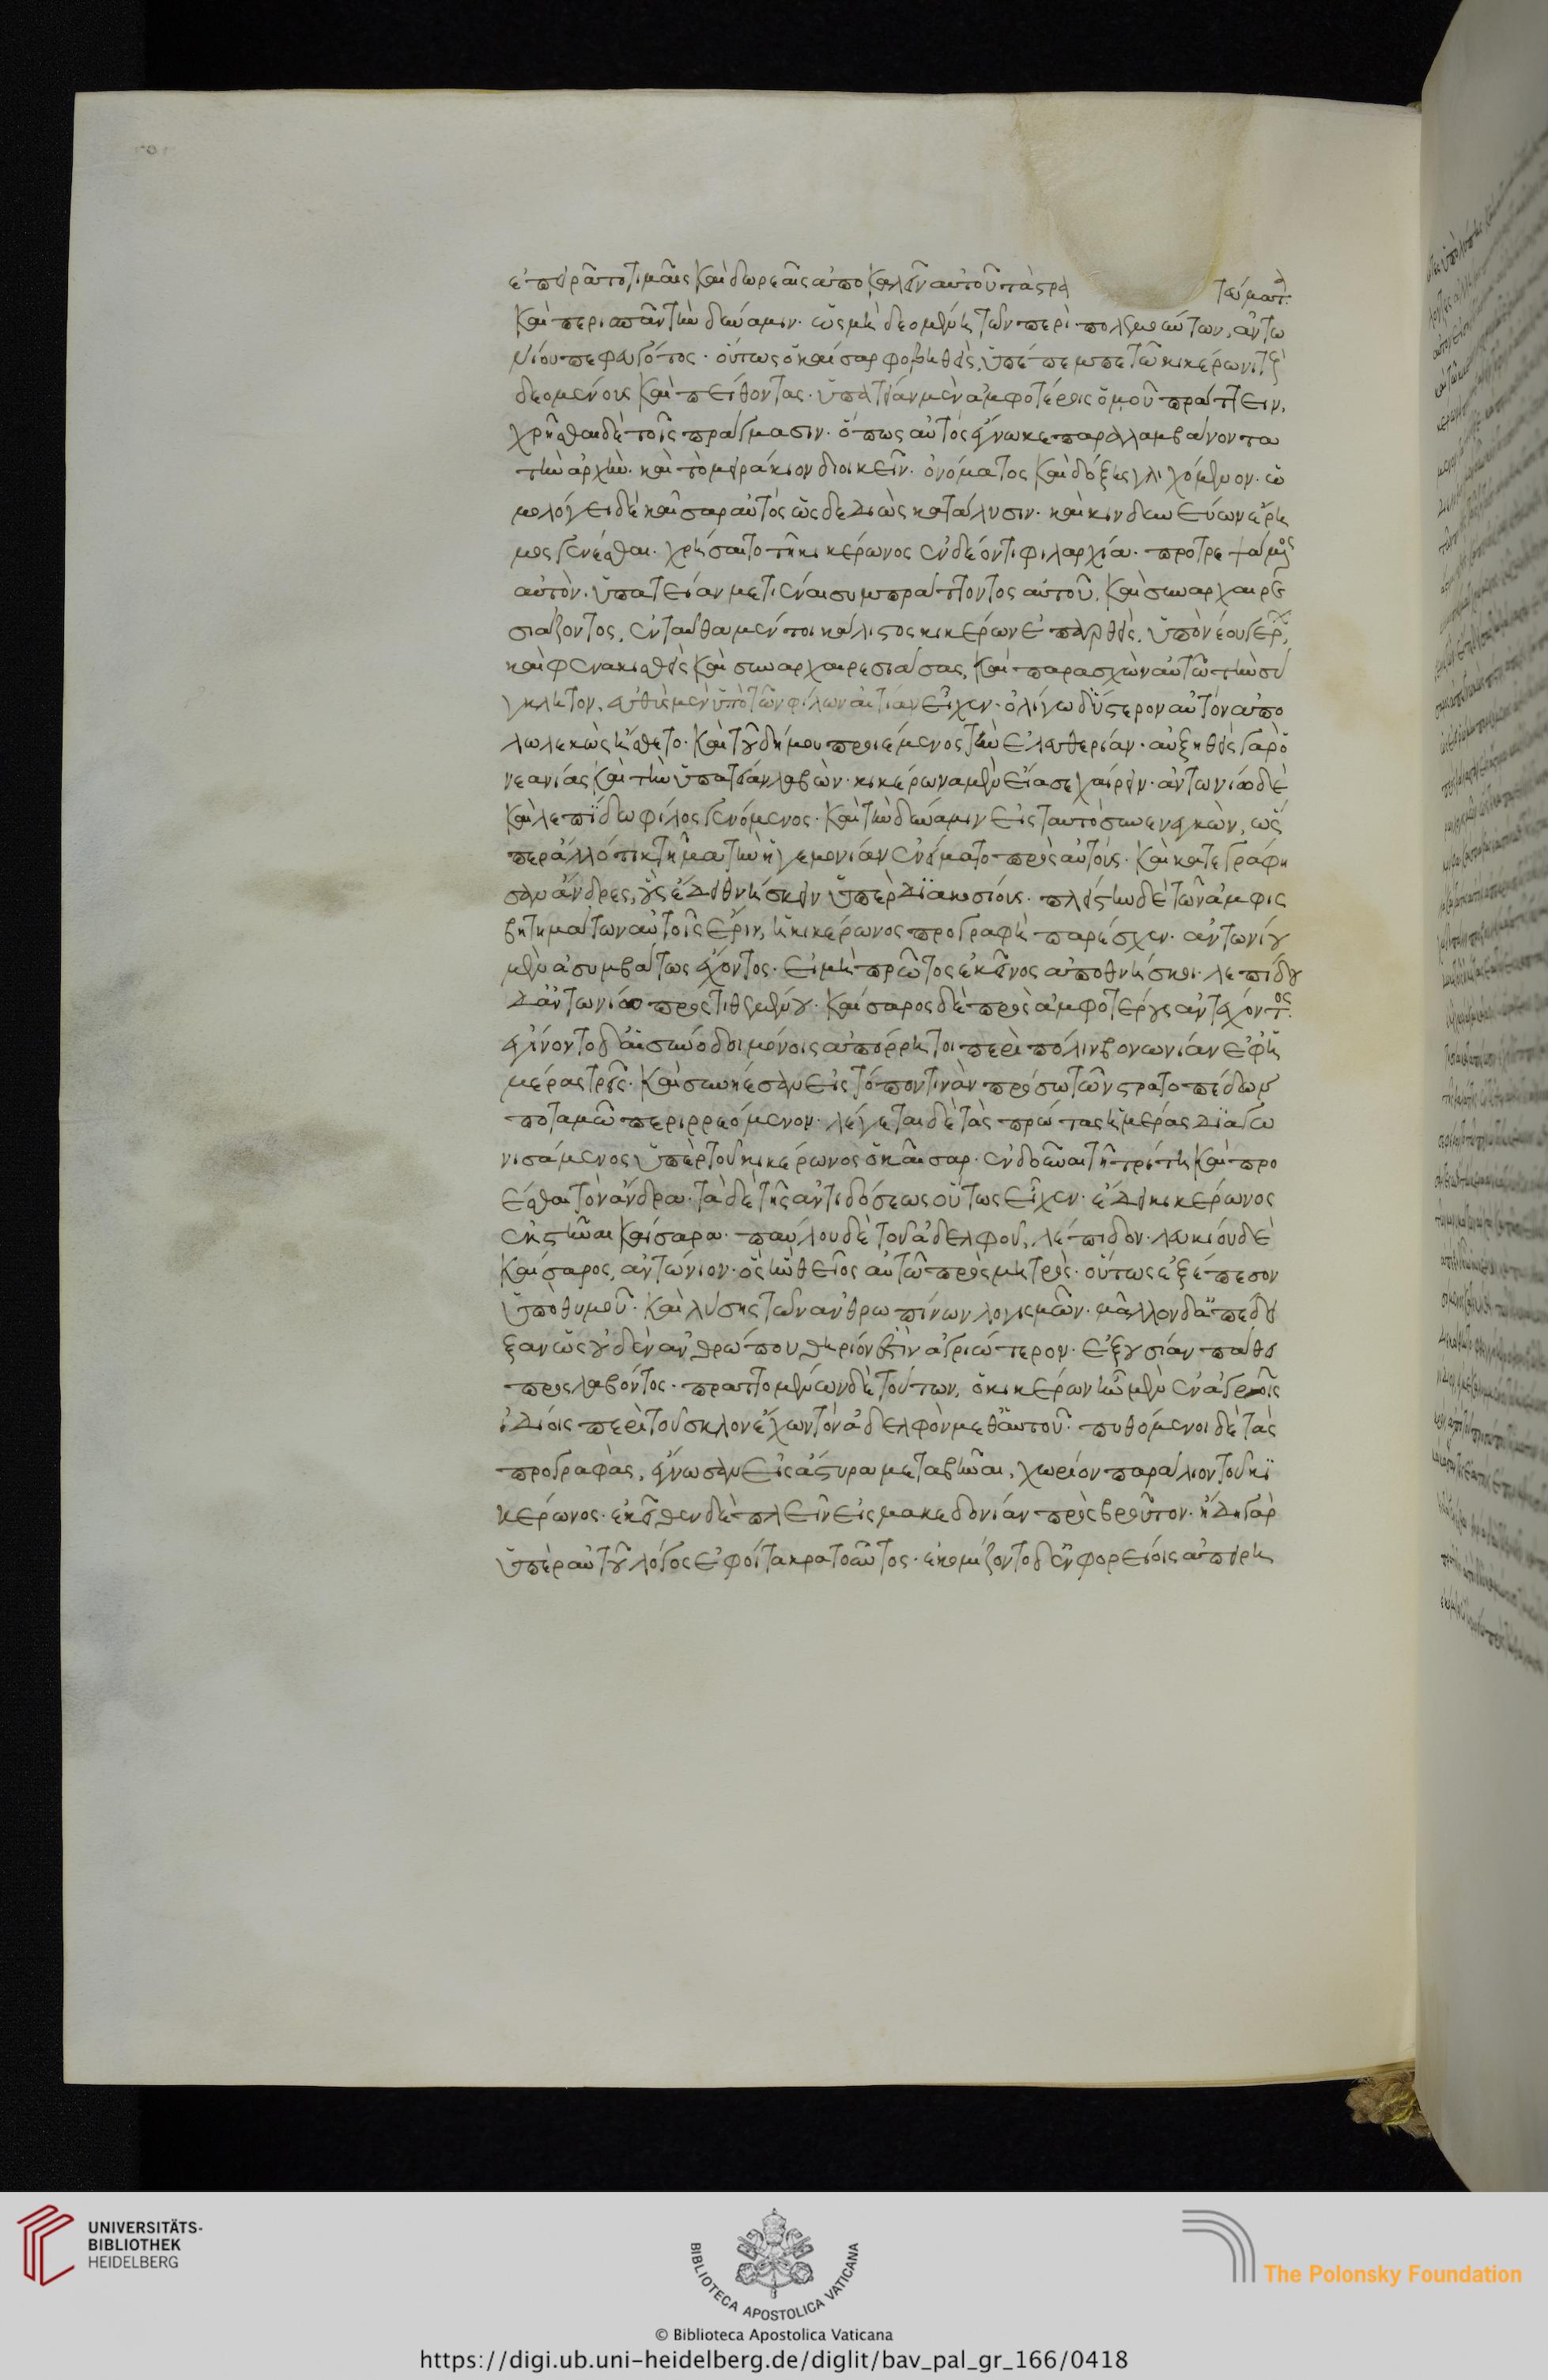 ἐπειρᾶτο τιμαῖς καὶ δωρεαῖς ἀποκαλεῖν αὐτοῦ τὰ στρα τεύματα
καὶ περισπᾶν τὴν δύναμιν· ὡς μὴ δεομένης τῶν περιπολεμούντων, ἀντω
νίου πεφευγότος· οὕτως ὁ καῖσαρ φοβηθεὶς, ὑπέπεμπε τῶ κικέρωνι τοὺς
δεομένους καὶ πείθοντας· ὑπατείαν μὲν ἀμφοτέροις ὁμοῦ πράττειν,
χρῆσθαι δὲ τοῖς πράγμασιν· ὅπως αὐτὸς ἔγνωκε παραλαμβάνοντα
τὴν ἀρχὴν· καὶ τὸ μειράκιον διοικεῖν· ὀνόματος καὶ δόξης γλιχόμενον· ὡ
μολόγει δὲ καῖσαρ αὐτὸς ὡς δεδιὼς κατάλυσιν· καὶ κινδυνεύων ἔρη
μος γενέσθαι· χρήσαιτο τῆ κικέρωνος ἐν δέοντι φιλαρχία· προτρεψάμενος
αὐτὸν· ὑπατείαν μετιέναι συμπράττοντος αὐτοῦ, καὶ συναρχαιρε
σιάζοντος, ἐνταῦθα μέντοι μάλιστα κικέρων ἐπαρθεὶς, ὑπὸ νέου γέρων,
καὶ φενακισθεὶς καὶ συναρχαιρεσιάσας, καὶ παρασχὼν αὐτῶ τὴν σύ
γκλητον, εὐθὺς μὲν ὑπὸ τῶν φίλων αἰτίαν εἶχεν· ὀλίγω δ' ὕστερον αὑτὸν ἀπο
λωλεκὼς ἤσθετο· καὶ τοῦ δήμου προιέμενος τὴν ἐλευθερίαν· αὐξηθεὶς γὰρ ὁ
νεανίας καὶ τὴν ὑπατείαν λαβὼν· κικέρωνα μὲν εἴασε χαίρειν· ἀντωνίω δὲ
καὶ λεπίδω φίλος γενόμενος· καὶ τὴν δύναμιν εἰς ταυτὸ συνενεγκὼν, ὥς
περ ἄλλό τι κτῆμα τὴν ἡγεμονίαν ἐνείματο πρὸς αὐτοὺς· καὶ κατεγράφη
σαν ἄνδρες, οὓς ἔδει θνήσκειν ὑπὲρ διακοσίους· πλείστην δὲ τῶν ἀμφις
βητημάτων αὐτοῖς ἔριν, ἡ κικέρωνος προγραφὴ παρέσχεν· ἀντωνίου
μὲν ἀσυμβάτως ἔχοντος· εἰ μὴ πρῶτος ἐκεῖνος ἀποθνήσκοι· λεπίδου
δ' ἀντωνίω προστιθεμένου· καίσαρος δὲ πρὸς ἀμφοτέρους ἀντέχοντος
ἐγίνοντο δ' αἱ σύνοδοι μόνοις ἀπόρρητοι περὶ πόλιν βονωνίαν ἐφ' ἡ
μέρας τρεῖς· καὶ συνήεσαν εἰς τόπον τινὰν πρόσω τῶν στρατοπέδων
ποταμῶ περιρρεόμενον· λέγεται δὲ τὰς πρώτας ἡμέρας διαγω
νισάμενος ὑπὲρ τοῦ κικέρωνος ὁ καῖσαρ· ἐνδοῦναι τῆ τρίτη καὶ προ
έσθαι τὸν ἄνδρα· τὰ δὲ τῆς ἀντιδόσεως οὕτως εἶχεν· ἔδει κικέρωνος
ἐκστῆναι καίσαρα· παύλου δὲ τοῦ ἀδελφοῦ, λέπιδον· λευκίου δὲ
καίσαρος, ἀντώνιον· ὃς ἦν θεῖος αὐτῶ πρὸς μητρὸς· οὕτως ἐξέπεσον
ὑπὸ θυμοῦ· καὶ λύσης τῶν ἀνθρωπίνων λογισμῶν· μᾶλλον δ' ἀπέδει
ξαν ὡς οὐδὲν ἀνθρώπου θηρίόν ἐστὶν ἀγριώτερον· ἐξουσίαν πάθει
προσλαβόντος· πραττομένων δὲ τούτων, ὁ κικέρων ἦν μὲν ἐν ἀγροῖς
ἰδίοις περὶ τοῦσκλον ἔχων τὸν ἀδελφὸν μεθ' αὑτοῦ· πυθόμενοι δὲ τὰς
προγραφὰς, ἔγνωσαν εἰς ἄστυρα μεταβῆναι, χωρίον παράλιον τοῦ κι
κέρωνος· ἐκεῖθεν δὲ πλεῖν εἰς μακεδονίαν πρὸς βροῦτον· ἤδη γὰρ
ὑπὲρ αὐτοῦ λόγος ἐφοίτα κρατοῦντος· ἐκομίζοντο δ' ἐν φορείοις ἀπειρη
UNIVERSITÄTS-
BIBLIOTHEK
HEIDELBERG
BIBLIOTECA APOSTOLICA VATICANA
The Polonsky Foundation
© Biblioteca Apostolica Vaticana
https://digi.ub.uni-heidelberg.de/diglit/bav_pal_gr_166/0418